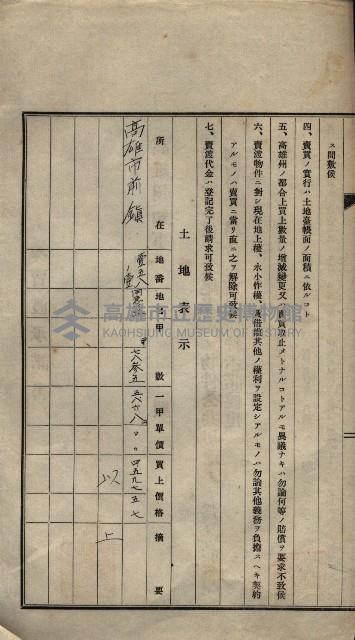 ス間敷候
四、賣買ノ實行ハ土地臺帳面ノ面積ニ依ルコト
五、高雄州ノ都合上買上數量ノ增減變更又ハ賣買取止メトナルコトアルモ異議ナキハ勿論何等ノ賠償ヲ要求不致候
六、賣渡物件ニ對シ現在地上權、永小作權、賃借權其他ノ權利ヲ設定シアルモノハ勿論其他義務ヲ負擔スヘキ契約
アルモノハ賣買ニ當リ直ニ之ヲ解除可致候
七、賣渡代金ハ登記完了後請求可致候
土地表示
所在 地番 地目 甲數 一甲單價 買上價格 摘要
高雄市前鎭
以上
高雄市立歷史博物館
KAOHSIUNG MUSEUM OF HISTORY